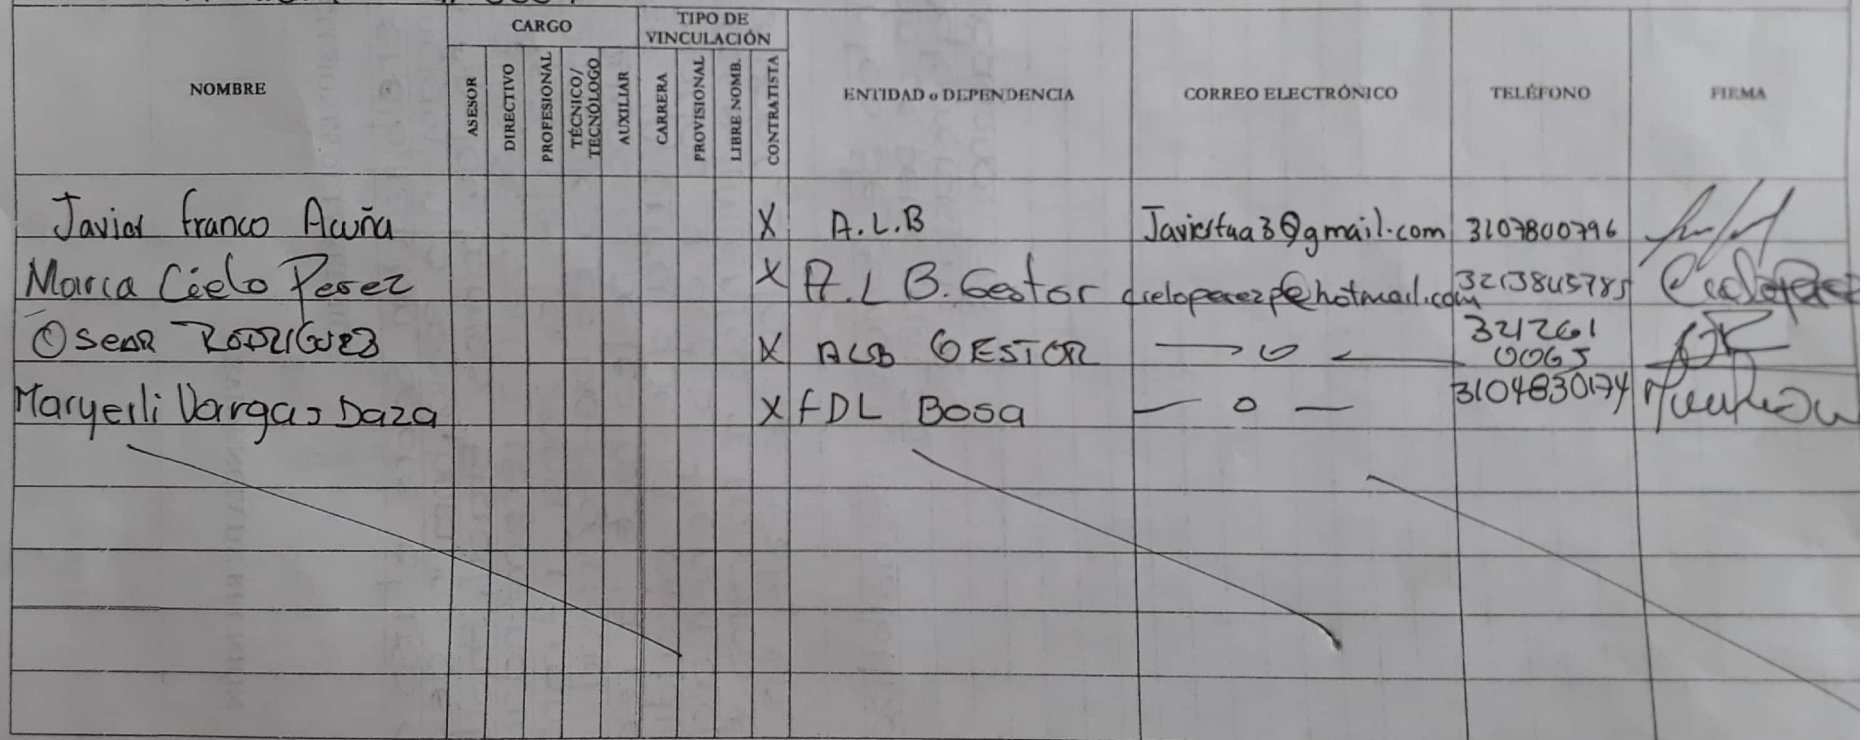 CARGO
TIPO DE VINCULACIÓN
NOMBRE
ASESOR
DIRECTIVO
PROFESIONAL
TÉCNICO/ TECNÓLOGO
AUXILIAR
CARRERA
PROVISIONAL
LIBRE NOMB.
CONTRATISTA
ENTIDAD o DEPENDENCIA
CORREO ELECTRÓNICO
TELÉFONO
FIRMA
Javier franco Acuña X A.L.B Javierfua3@gmail.com 3107800796
Maria Cielo Perez X A.L B. Gestor cieloperezp@hotmail.com 3213845785
Oscar RODRIGUEZ X ALB GESTOR 321261 0065
Maryerli Vargas Daza X FDL Bosa 3104830174